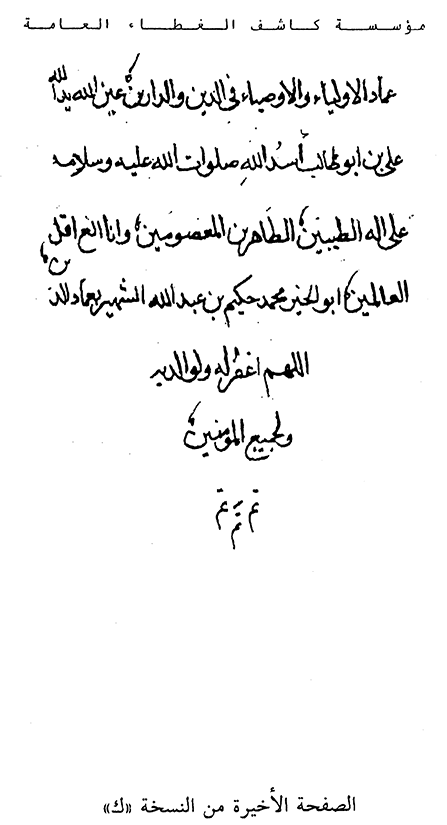 مؤسسة كاشف الغطاء العامة
عماد الاولياء والاوصياء في الدين والدارين عين الله يد الله
علي بن ابو طالب أسد الله صلوات الله عليه وسلامه
على اله الطيبين الطاهرين المعصومين وانا اقل
العالمين ابو الخير محمد حكيم بن عبد الله الشهير بعماد الدين
اللهم اغفر له ولوالديه
ولجميع المؤمنين
تم تم تم
الصفحة الأخيرة من النسخة «ك»